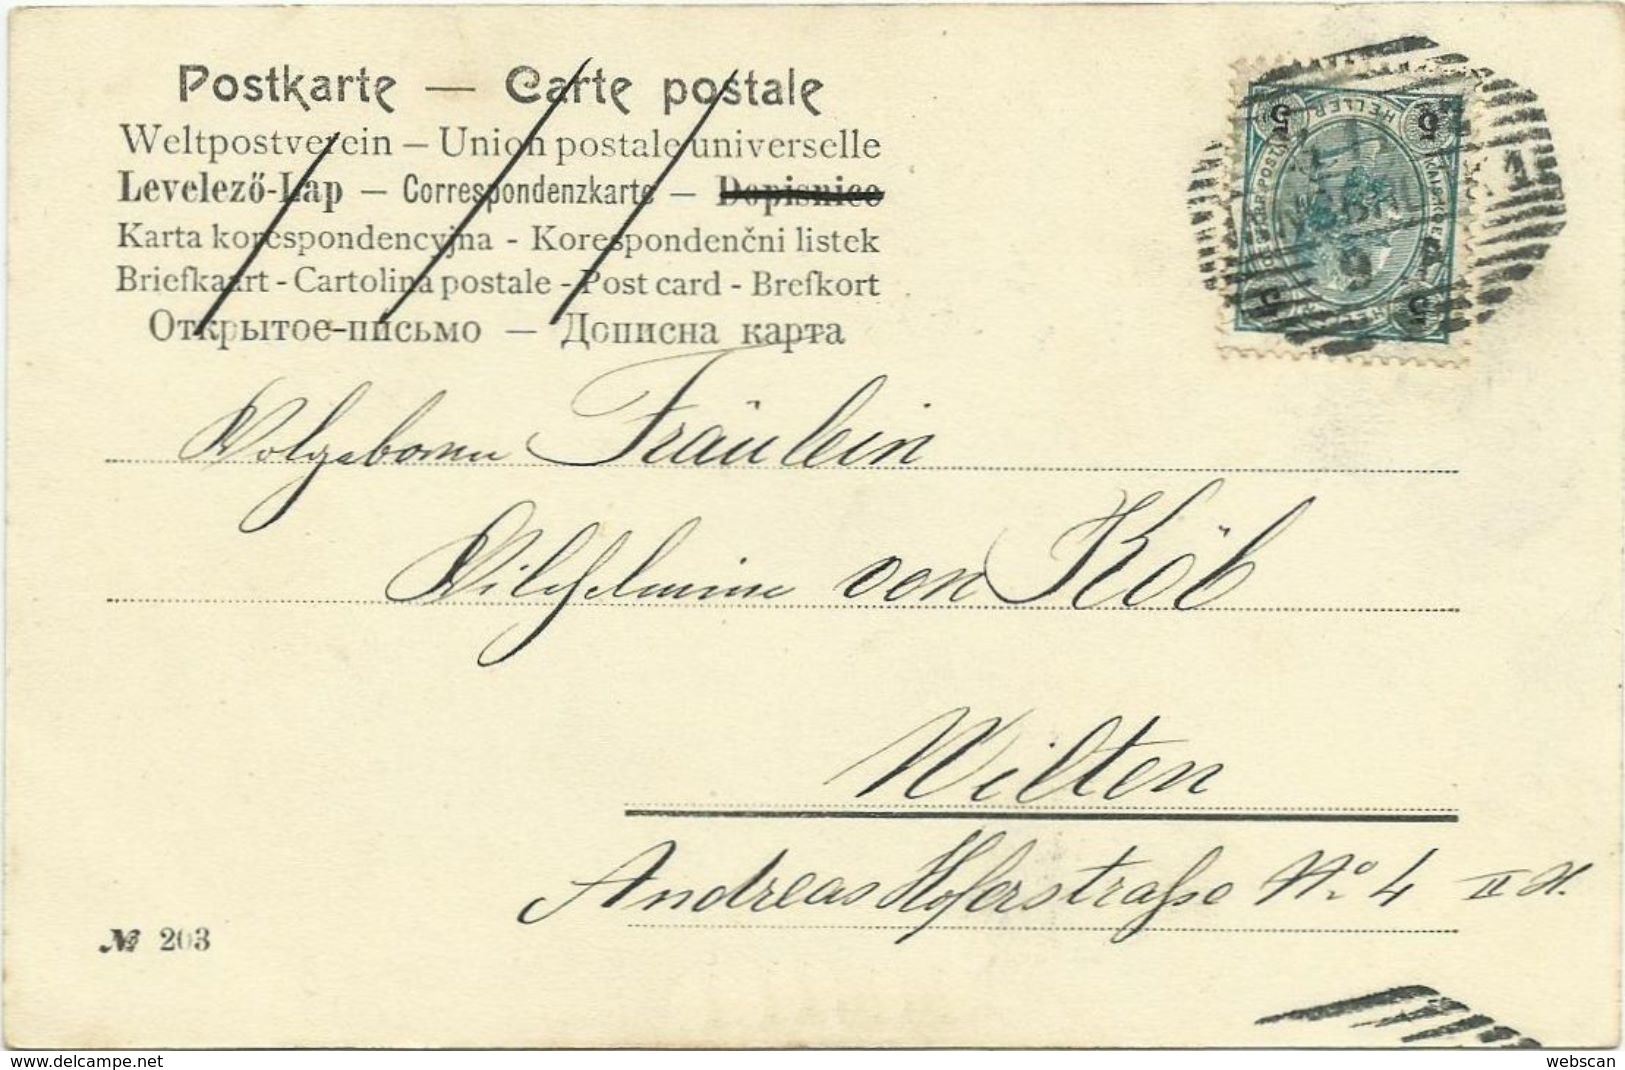 Postkarte — Carte postale
Weltpostverein – Union postale universelle
Levelező-Lap – Correspondenzkarte – Dopisnice
Karta korespondencyjna - Korespondenční listek
Briefkaart - Cartolina postale - Post card - Brefkort
Открытое-письмо — Дописна карта
5 HELLER 5
Wolgeboren Fräulein
Wilhelmine von Köb
Wilten
Andreas Hoferstraße No. 4 II St.
№ 203
www.delcampe.net
webscan